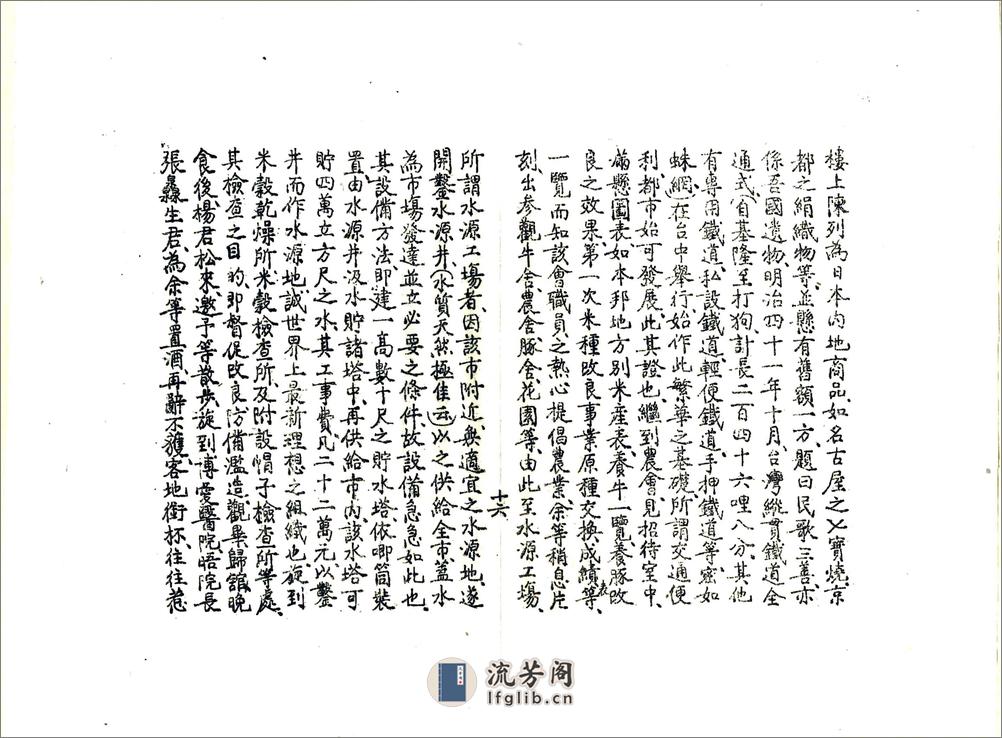 樓上陳列為日本內地商品、如名古屋之七寶燒、京
都之絹織物等、並懸有舊額一方、題曰民歌三善、亦
係吾國遺物、明治四十一年十月、台灣縱貫鐵道全
通式、(自基隆至打狗計長二百四十六哩八分、其他
有專用鐵道、私設鐵道、輕便鐵道、手押鐵道等、密如
蛛網)在台中舉行、始作此繁華之基礎、所謂交通便
利、都市始可發展、此其證也、繼到農會、見招待室中、
滿懸圖表、如本邦地方別米產表、養牛一覽、養豚改
良之效果、第一次米種改良事業原種交換成績等表
一覽而知該會職員之熱心提倡農業、余等稍息片
刻、出參觀牛舍、農舍、豚舍、花園等、由此至水源工塲、
十六
所謂水源工場者、因該市附近、無適宜之水源地、遂
開鑿水源井、(水質天然極佳云)以之供給全市、蓋水
為市場發達並立必要之條件、故設備急急如此也、
其設備方法、即建一高數十尺之貯水塔、依唧筒裝
置、由水源井汲水貯諸塔中、再供給市內、該水塔可
貯四萬立方尺之水、其工事費凡二十二萬元、以鑿
井而作水源地、誠世界上最新理想之組織也、旋到
米穀乾燥所、米穀檢查所、及附設帽子檢查所等處、
其檢查之目的、即督促改良、防備濫造、觀畢歸館、晚
食後、楊君松來、邀予等散步、旋到博愛醫院、晤院長
張鱻生君、為余等置酒、再辭不獲、客地銜杯、往往惹
流芳阁
lfglib.cn